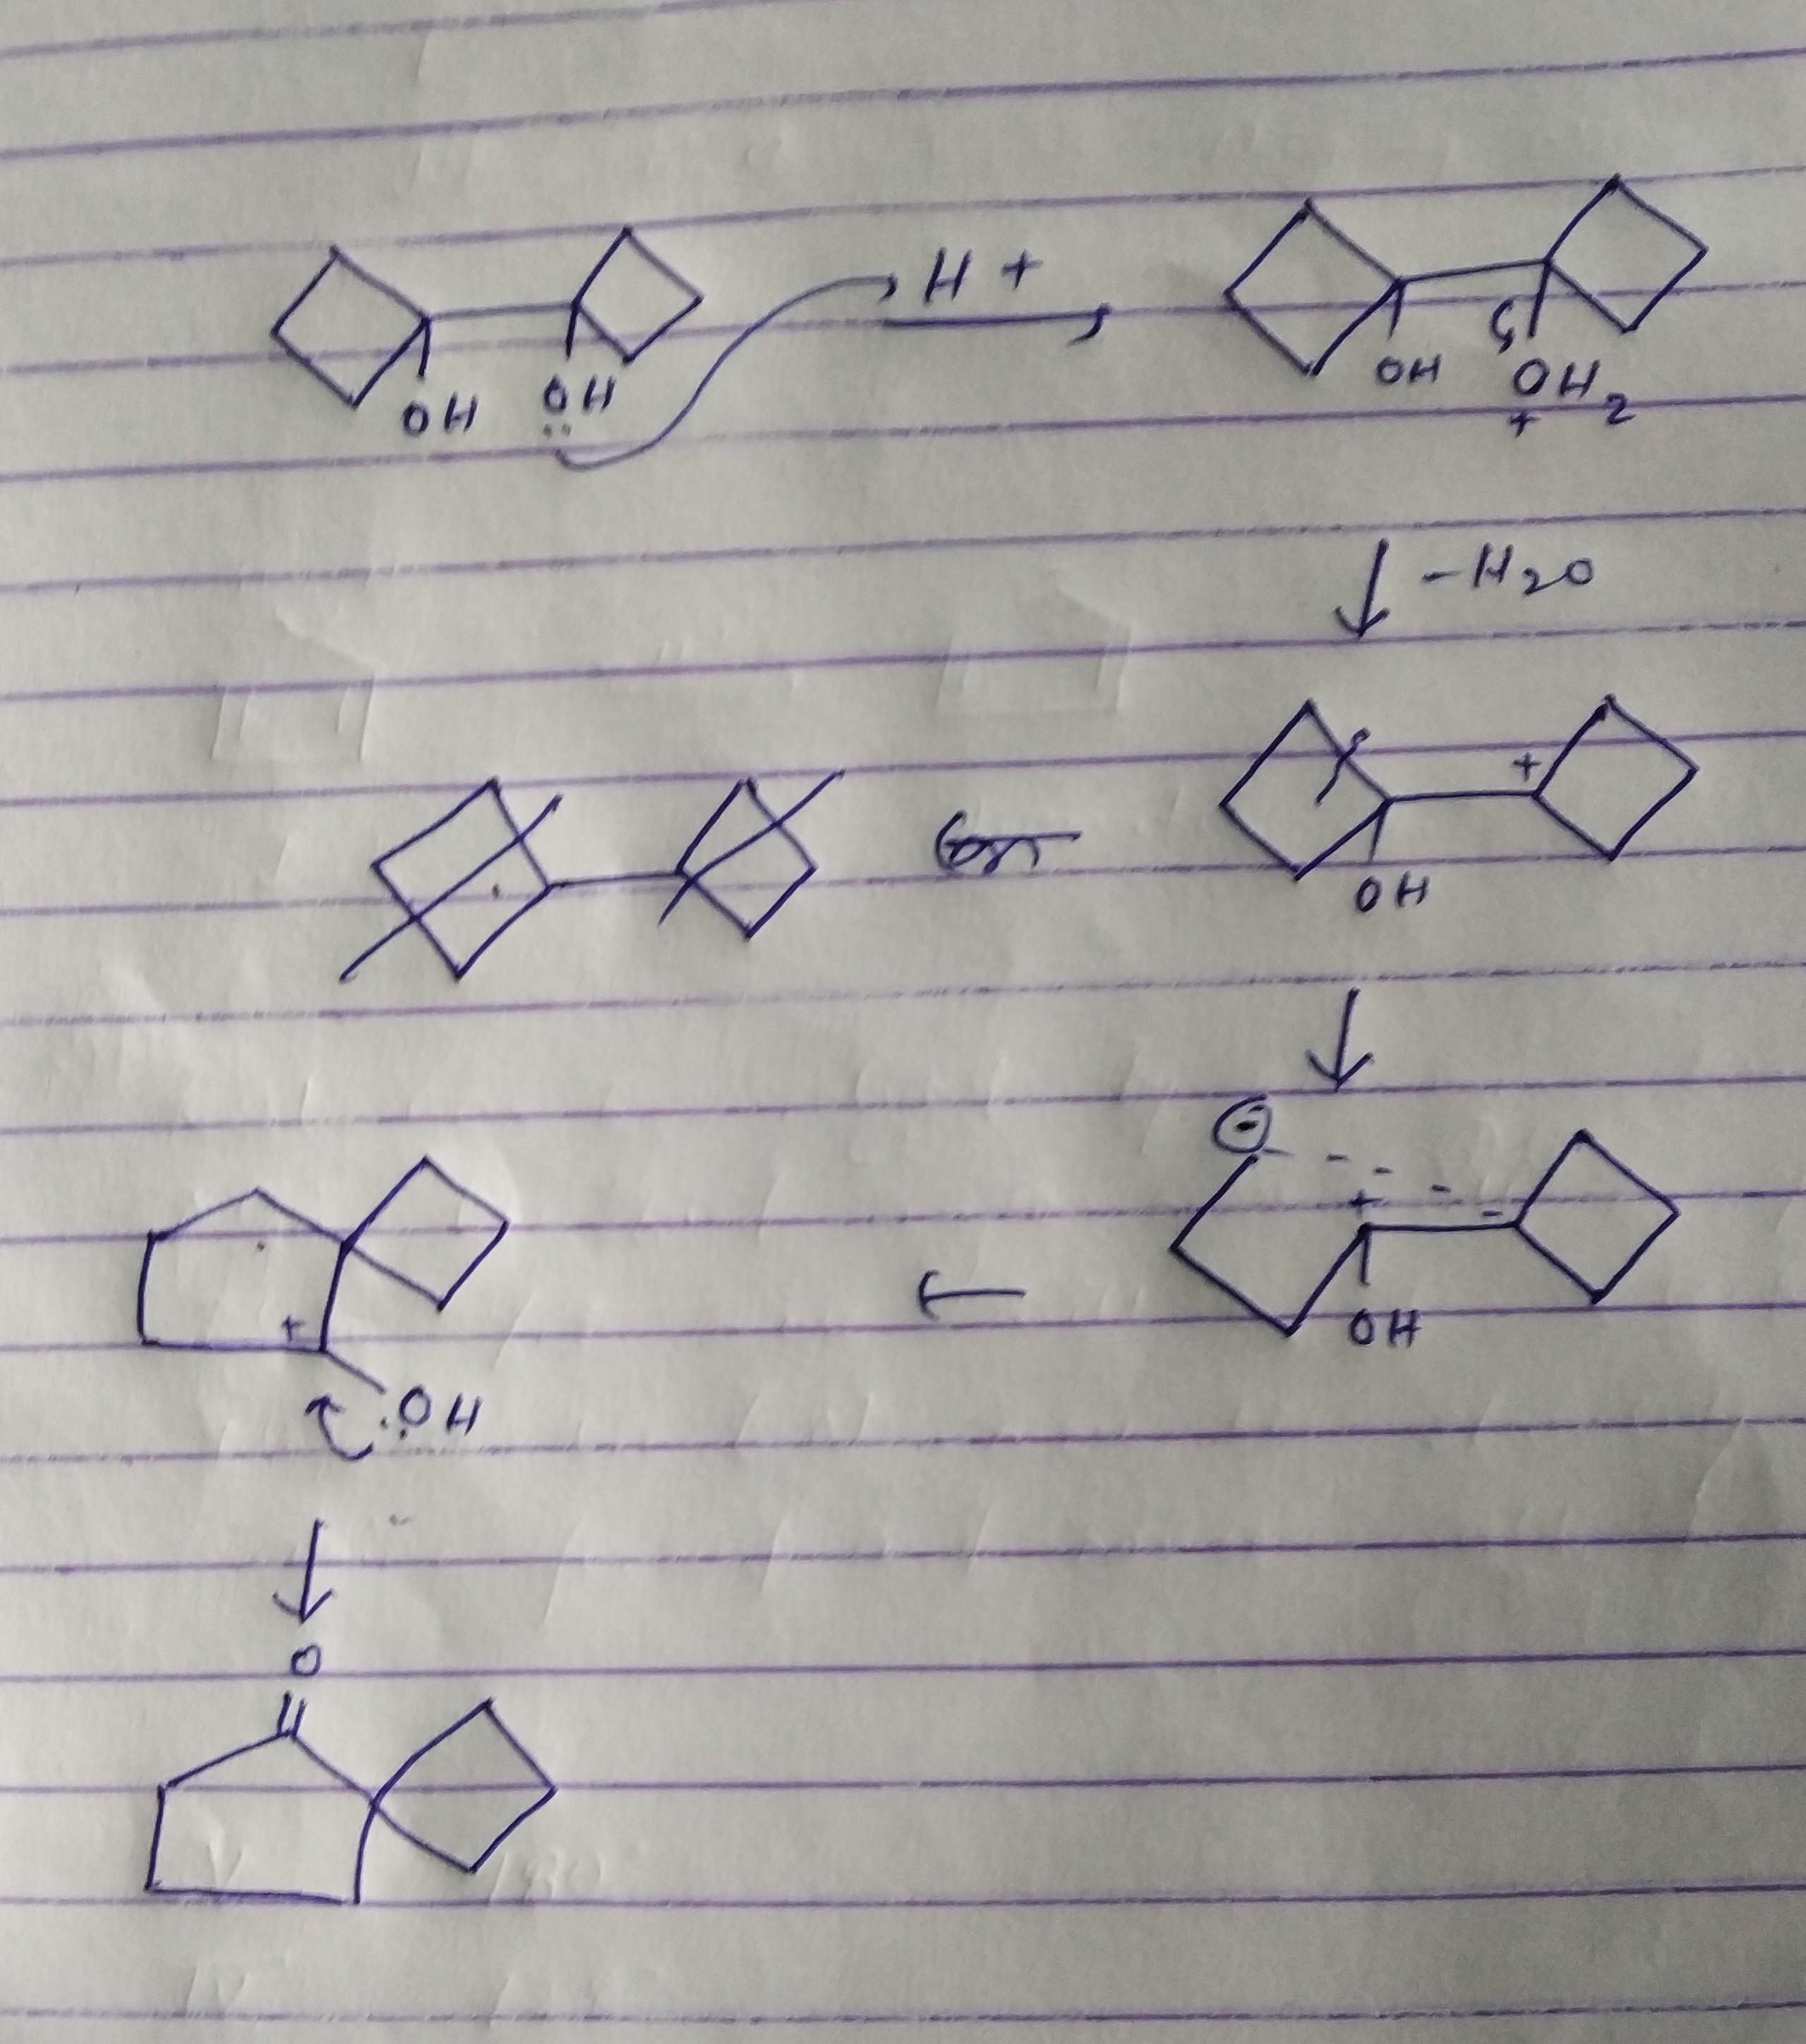 H +
OH OH
OH OH2
+
- H2O
+
OH
-
+
OH
+
OH
O